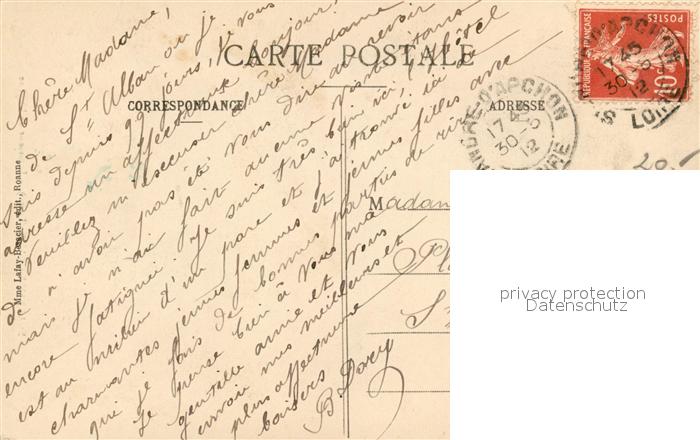 CARTE POSTALE
CORRESPONDANCE
ADRESSE
Chère Madame,
de St Alban où je
suis depuis 22 jours, je vous
adresse un affectueux bonjour.
Veuillez m'excuser chère Madame
de n'avoir pas été vous dire au revoir
mais je n'ai fait aucune visite étant
encore fatiguée. Je suis très bien ici, l'hôtel
est au milieu d'un parc et j'ai trouvé ici
charmantes jeunes femmes et jeunes filles avec
qui je fais de bonnes parties de rire
Je pense bien à vous ma
gentille amie et vous
envoie mes meilleurs et
plus affectueux
baisers
B Dory
Madam
Pl
S
20
Mme Lafay-Bessacier, édit., Roanne
RÉPUBLIQUE FRANÇAISE
POSTES
10
ANDRÉ-D'APCHON
17 45
30 -5
12
LOIRE
ANDRÉ-D'APCHON
17
30 -5
12
LOIRE
privacy protection
Datenschutz